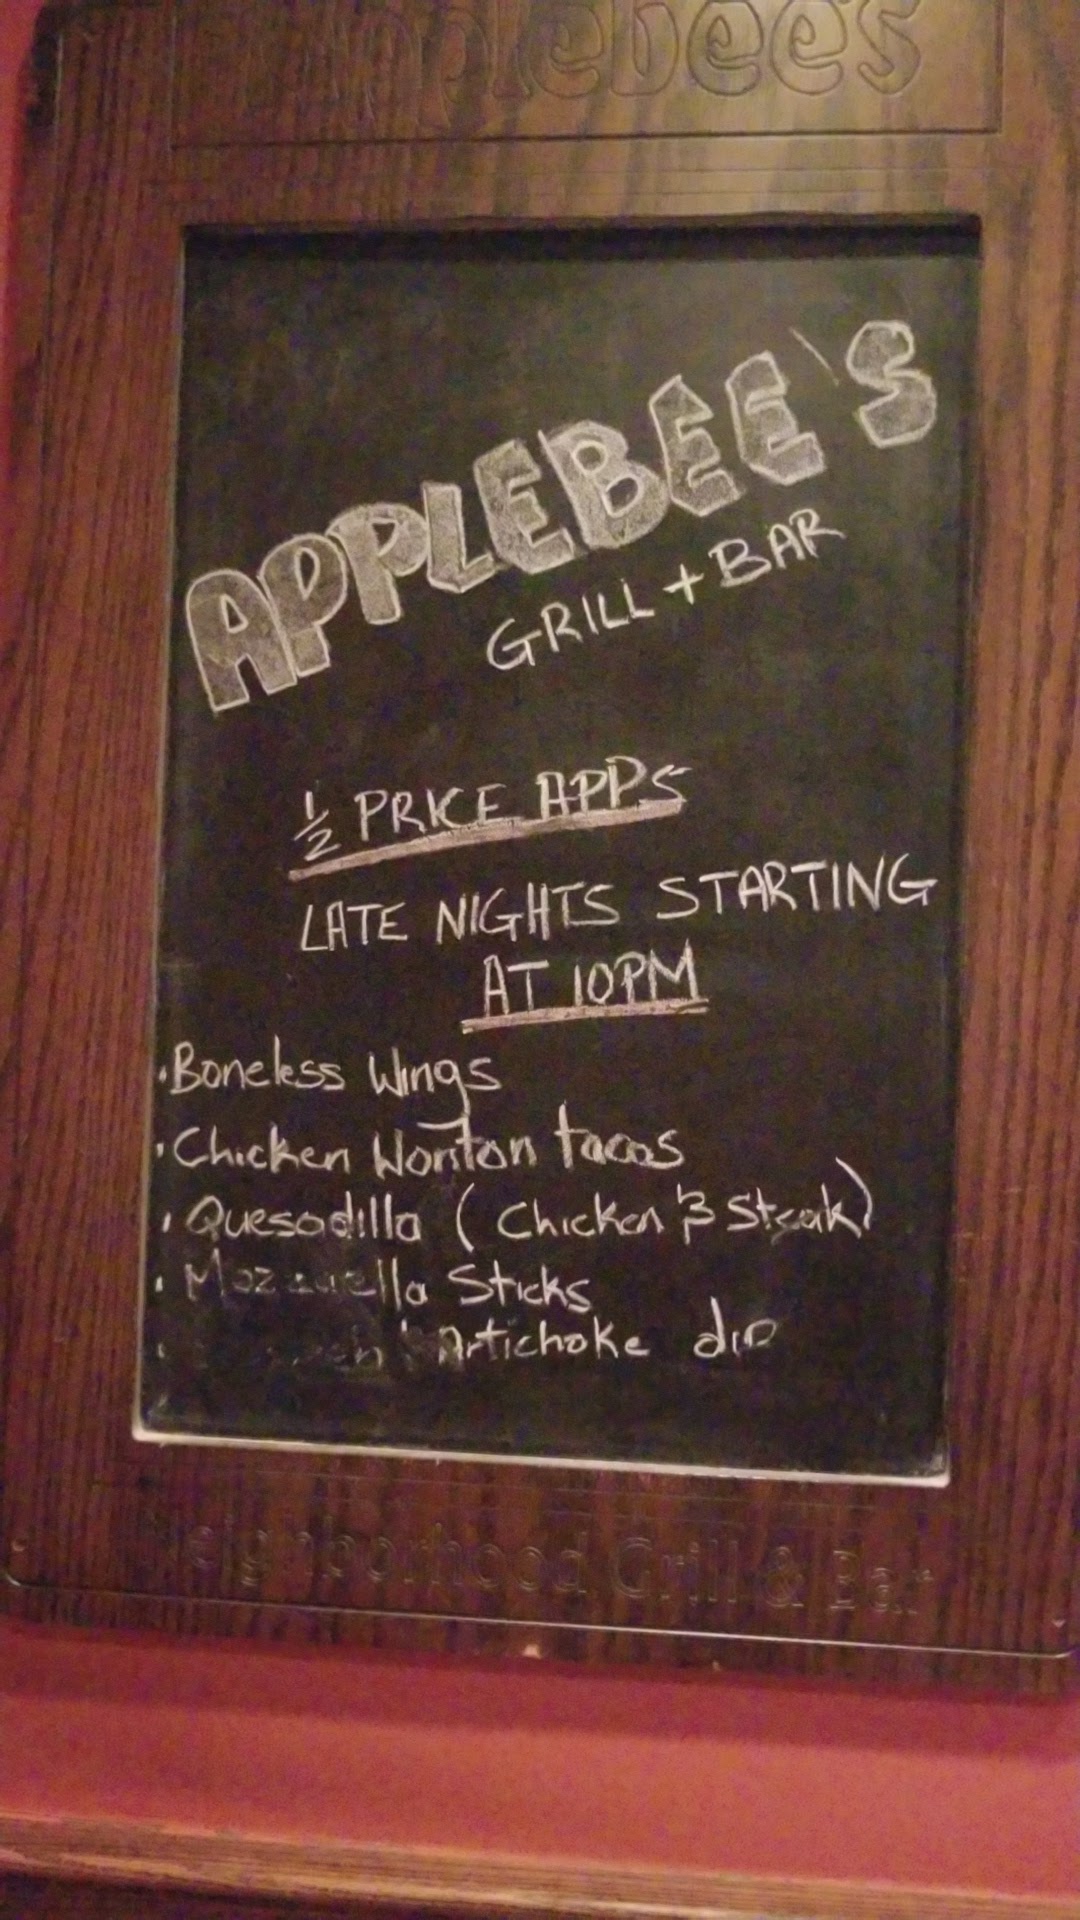 Applebee's
APPLEBEE'S
GRILL + BAR
½ PRICE APPS
LATE NIGHTS STARTING
AT 10PM
• Boneless Wings
• Chicken Wonton tacos
• Quesadilla ( Chicken & Steak)
• Mozzarella Sticks
• Artichoke dip
Neighborhood Grill & Bar